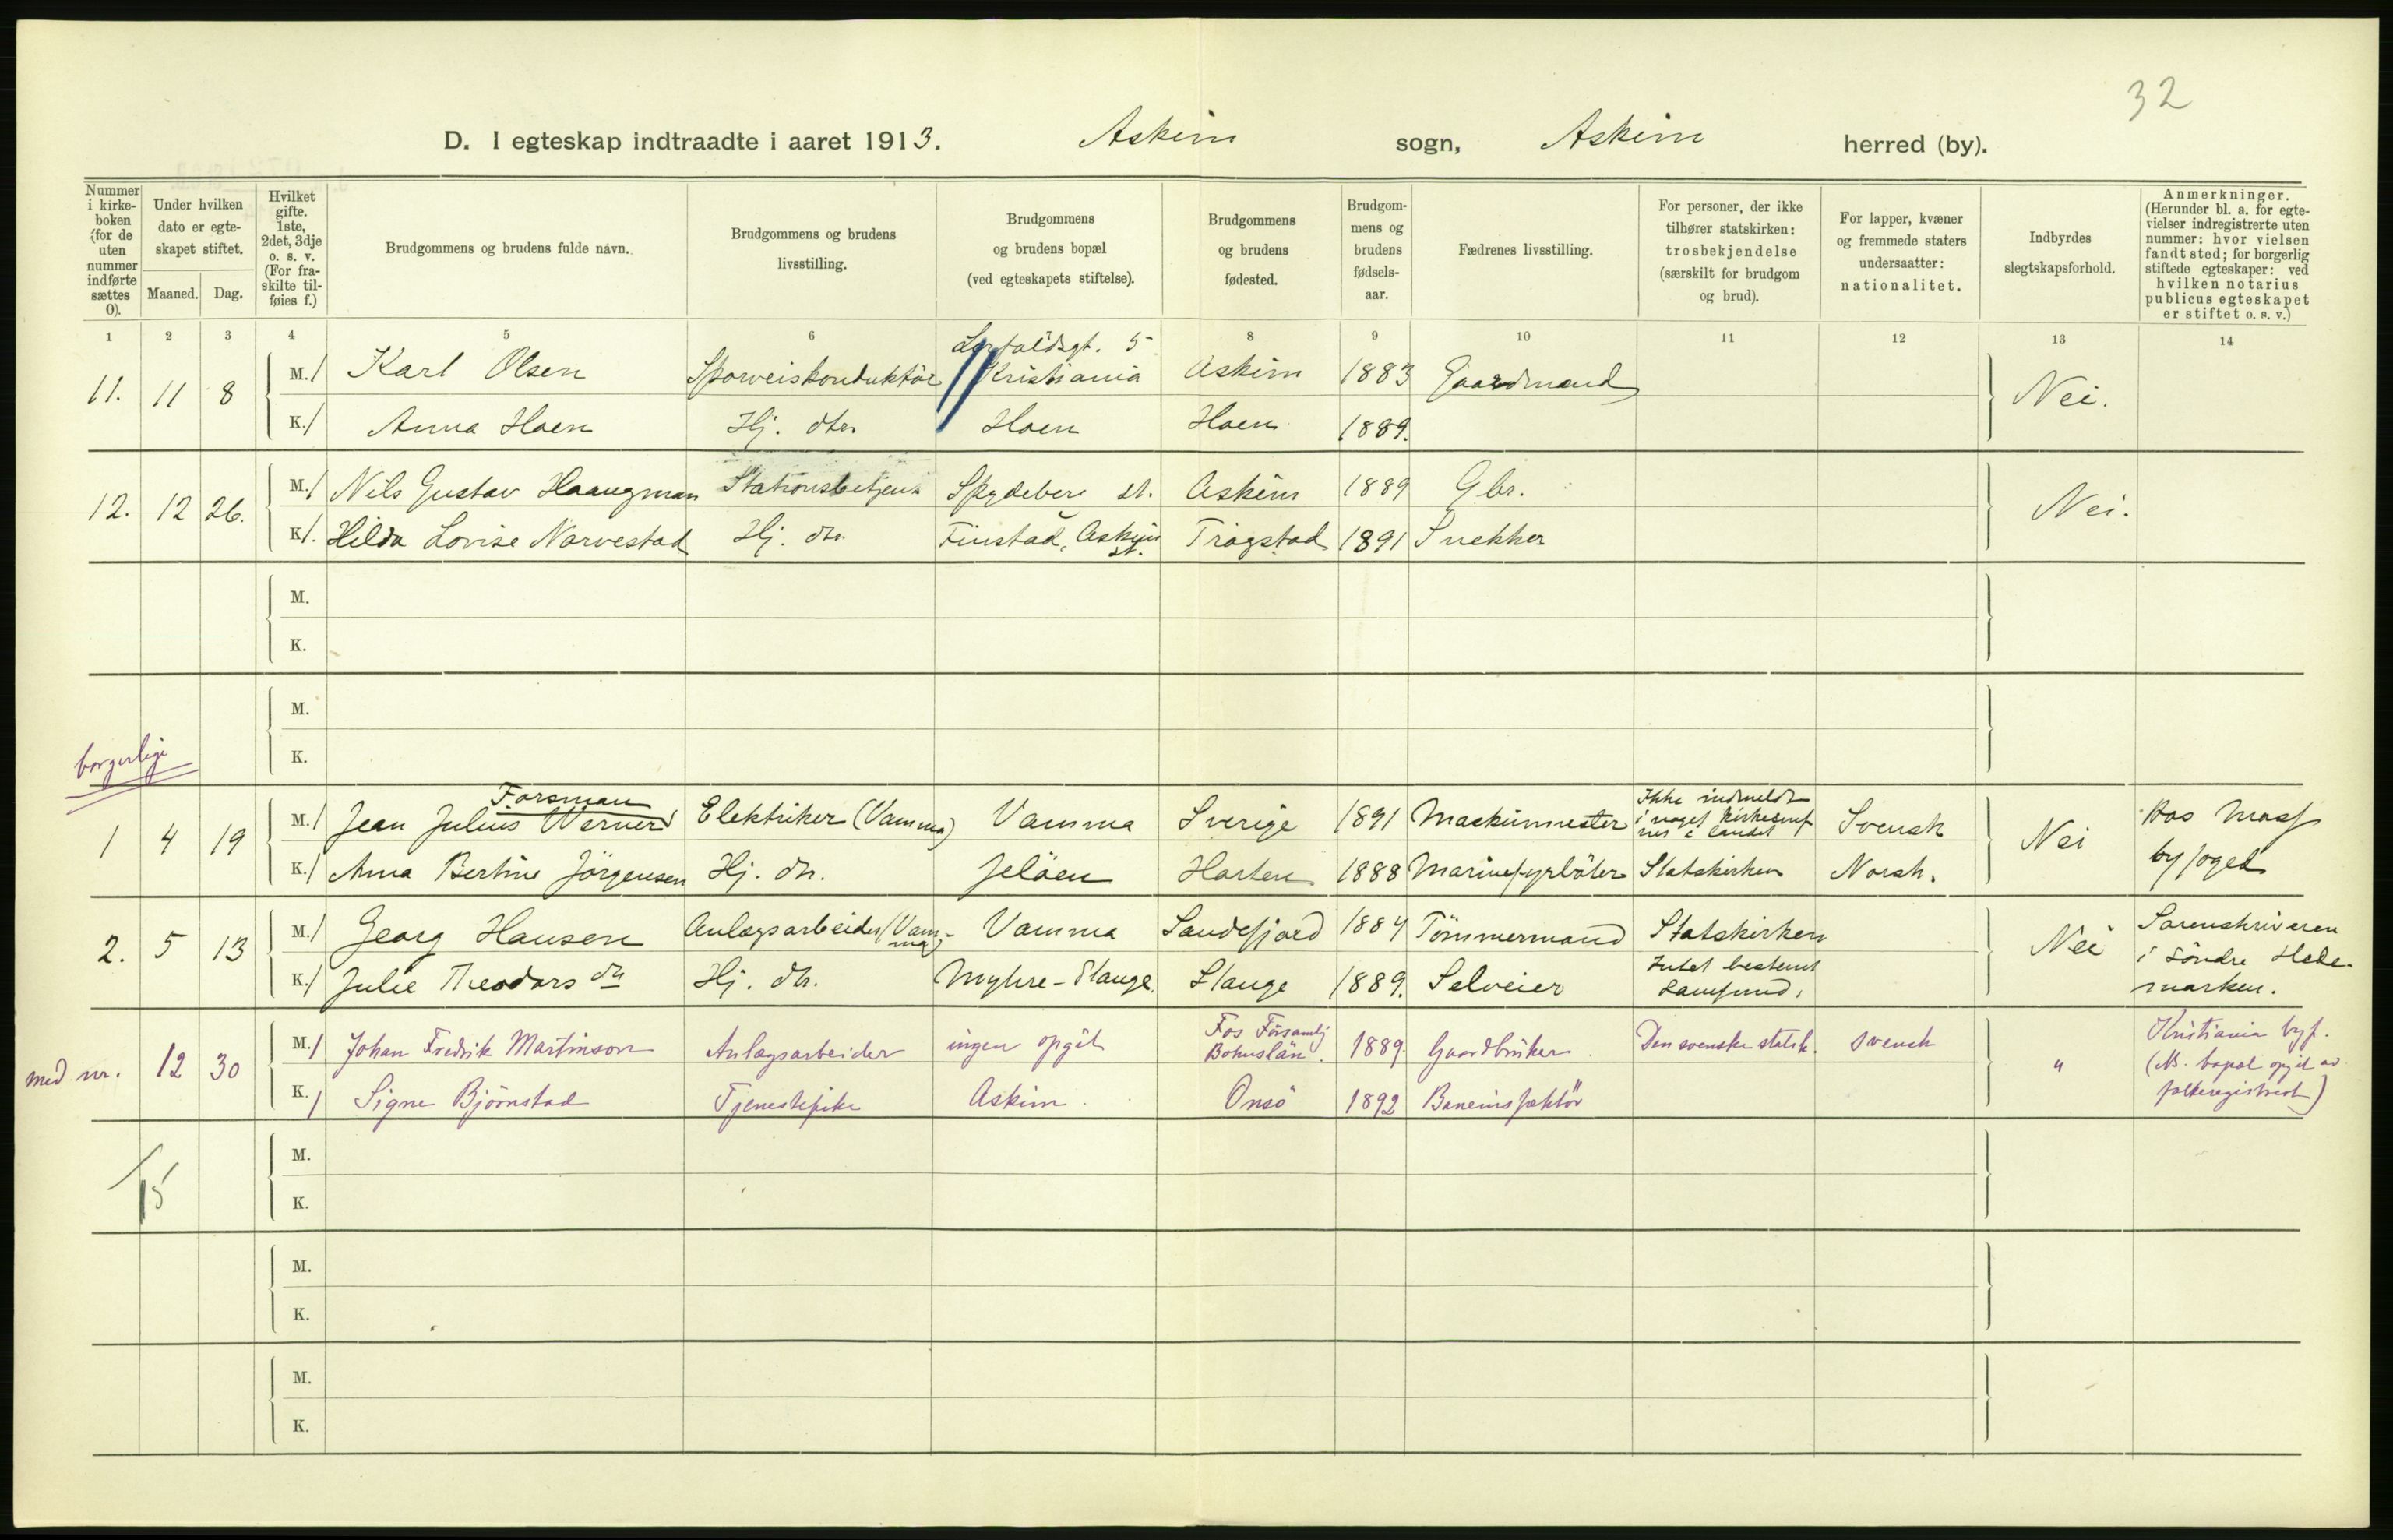 32
D. I egteskap indtraadte i aaret 1913. Askim sogn, Askim herred (by).
Nummer i kirke-boken (for de uten nummer indførte sættes 0).
Under hvilken dato er egte-skapet stiftet.
Maaned. Dag.
Hvilket gifte. 1ste, 2det, 3dje o. s. v. (For fra-skilte til-føies f.)
Brudgommens og brudens fulde navn.
Brudgommens og brudens livsstilling.
Brudgommens og brudens bopæl (ved egteskapets stiftelse).
Brudgommens og brudens fødested.
Brudgom-mens og brudens fødsels-aar.
Fædrenes livsstilling.
For personer, der ikke tilhører statskirken: trosbekjendelse (særskilt for brudgom og brud).
For lapper, kvæner og fremmede staters undersaatter: nationalitet.
Indbyrdes slegtskapsforhold.
Anmerkninger. (Herunder bl. a. for egte-vielser indregistrerte uten nummer: hvor vielsen fandt sted; for borgerlig stiftede egteskaper: ved hvilken notarius publicus egteskapet er stiftet o. s. v.)
1 2 3 4 5 6 8 9 10 11 12 13 14
11. 11 8 M. 1 Karl Olsen Sporveiskonduktør 5 Kristiania Askim 1883 Gaardmand Nei.
K. 1 Anna Haen Hj. dtr. Haen Haen 1889.
12. 12 26. M. 1 Nils Gustav Haangman Stationsbetjent Spydeberg st. Askim 1889 Gbr. Nei.
K. 1. Hilda Lovise Narvestad Hj. dtr. Finstad, Askim st. Trøgstad 1891 Snekker
M.
K.
M.
K.
borgerlige
1 4 19 M. 1 Jean Julius Werner Forsman Elektriker (Vamma) Vamma Sverige 1891 Maskinmester Ikke indmeldt i noget kirkesamf Svensk Nei Hos Moss byfoged
K. 1 Anna Bertine Jörgensen Hj. dtr. Jelöen Horten 1888 Marinefyrböter Statskirken Norsk.
2. 5 13 M. 1 Georg Hansen Anlægsarbeider (Vamma) Vamma Sandefjord 1884 Tömmermand Statskirken Nei Sorenskriveren i Söndre Hedemarken.
K. 1 Julie Theodors dtr Hj. dtr. Myhre - Stange. Stange 1889. Selveier Intet bestemt Samfund.
med nr. 12 30 M. 1 Johan Fredrik Martinson Anlægsarbeider ingen opgit Fos Församlj Bohuslän. 1889. Gaardbruker Den svenske statsk. svensk " Kristiania byf. (Ab. bopæl opgit av folkeregistret)
K. 1 Signe Björnstad Tjenestepike Askim. Onsö 1892 Baneinspektör
15
M.
K.
M.
K.
M.
K.